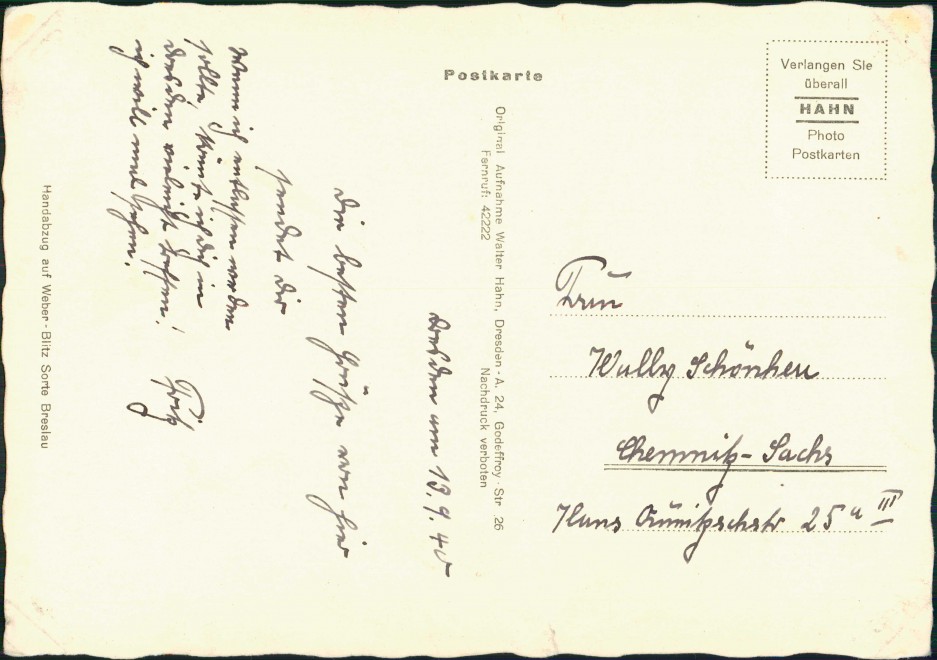 Postkarte
Verlangen Sie
überall
HAHN
Photo
Postkarten
Original Aufnahme Walter Hahn, Dresden-A. 24, Godeffroy-Str 26
Fernruf: 42222 Nachdruck verboten
Handabzug auf Weber-Blitz Sorte Breslau
Dresden am 13.9.40
Die besten Grüße von hier
sendet dir
Wenn ich entlassen werden
sollte könnte ich dich in
Dresden vielleicht treffen!
ich will mal sehen.
Fritz
Frau
Wally Schönherr
Chemnitz-Sachs
Hans 25a III